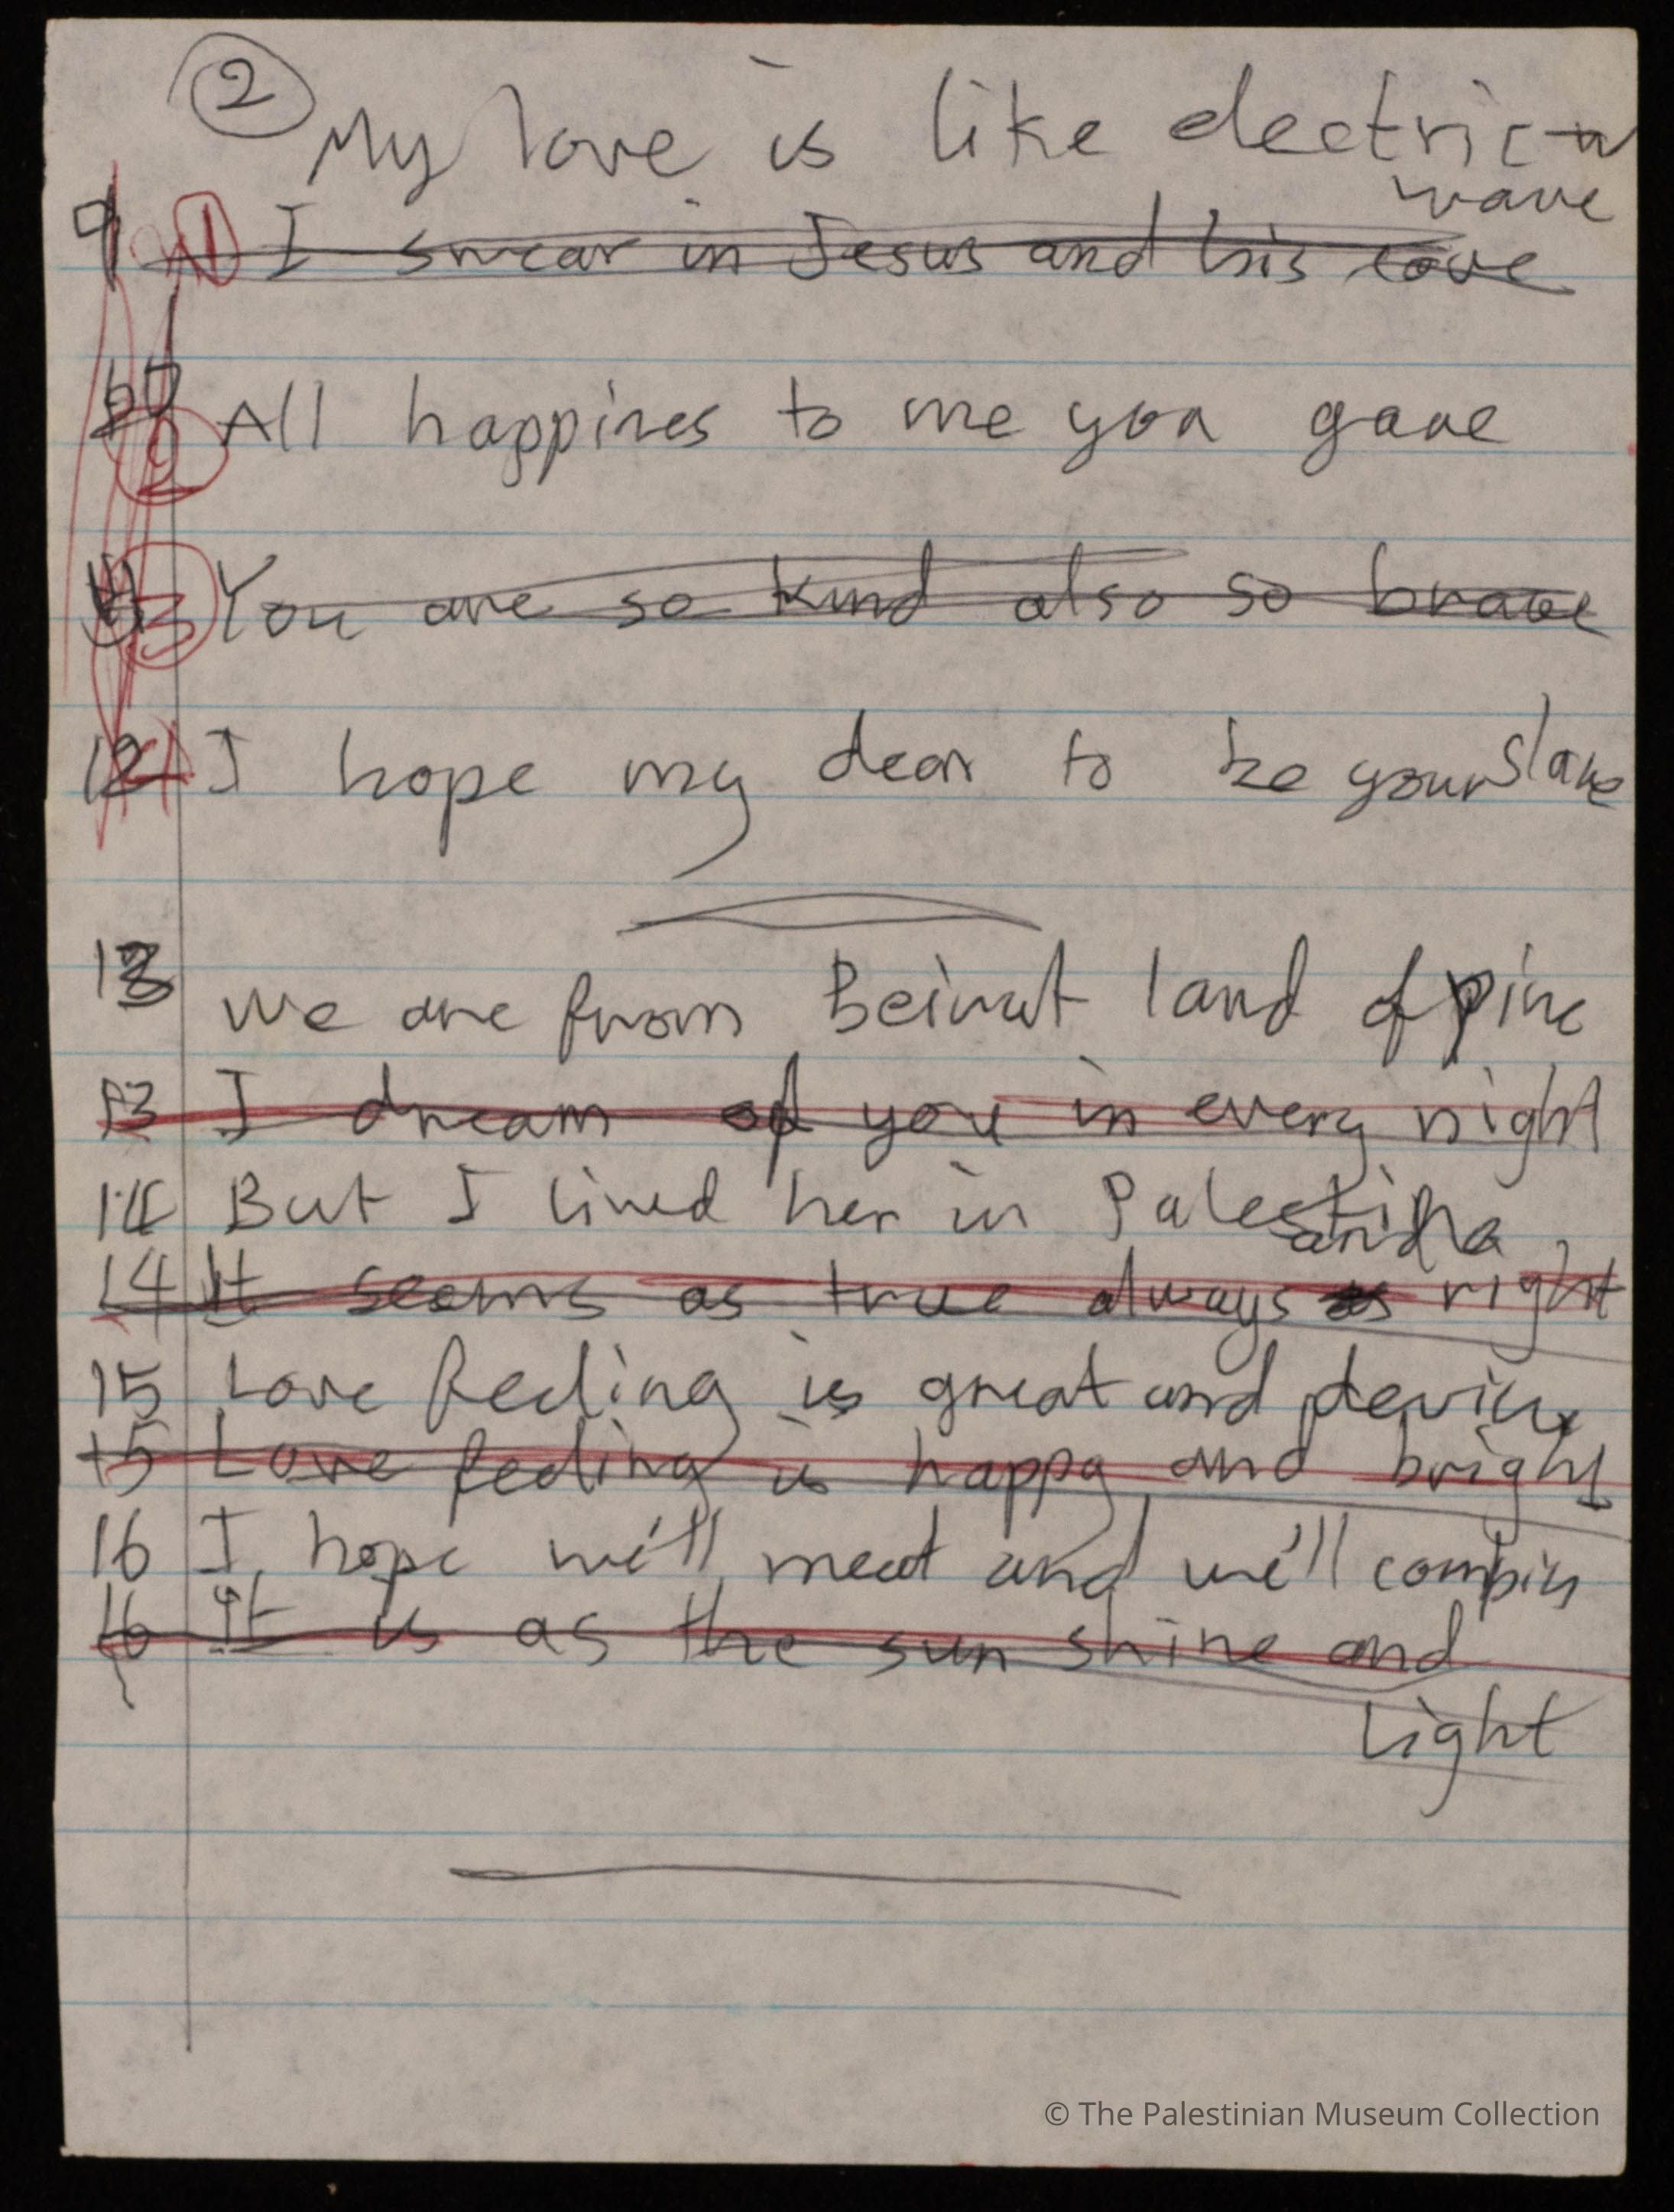 2
My love is like electric
wave
9 1 I swear in Jesus and his love
10 2 All happines to me you gave
11 3 You are so kind also so brave
12 4 I hope my dear to be your slave
13 we are from Beirut land of pine
13 I dream of you in every night
14 But I lived her in Palestina
14 It seems as true always as right
15 Love feeling is great and devine
15 Love feeling is happy and bright
16 I hope we'll meet and we'll combin
16 It is as the sun shine and
Light
© The Palestinian Museum Collection